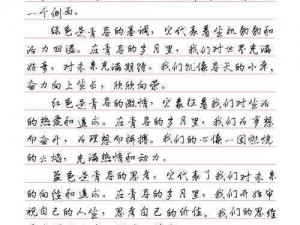 一个侧面。
绿色是青春的基调，它代表着生机勃勃和
活力四溢。在青春的岁月里，我们对世界充满
好奇，对未来充满期待。我们就像春天的小草，
奋力向上生长，欣欣向荣。
红色是青春的激情，它象征着我们对生活
的热爱和追求。在青春的岁月里，我们为梦想
而奋斗，为理想而拼搏。我们的心像一团燃烧
的火焰，充满热情和动力。
蓝色是青春的思考，它代表了我们对未来
的向往和追求。在青春的岁月里，我们开始审
视自己的人生，思考自己的价值。我们的思维